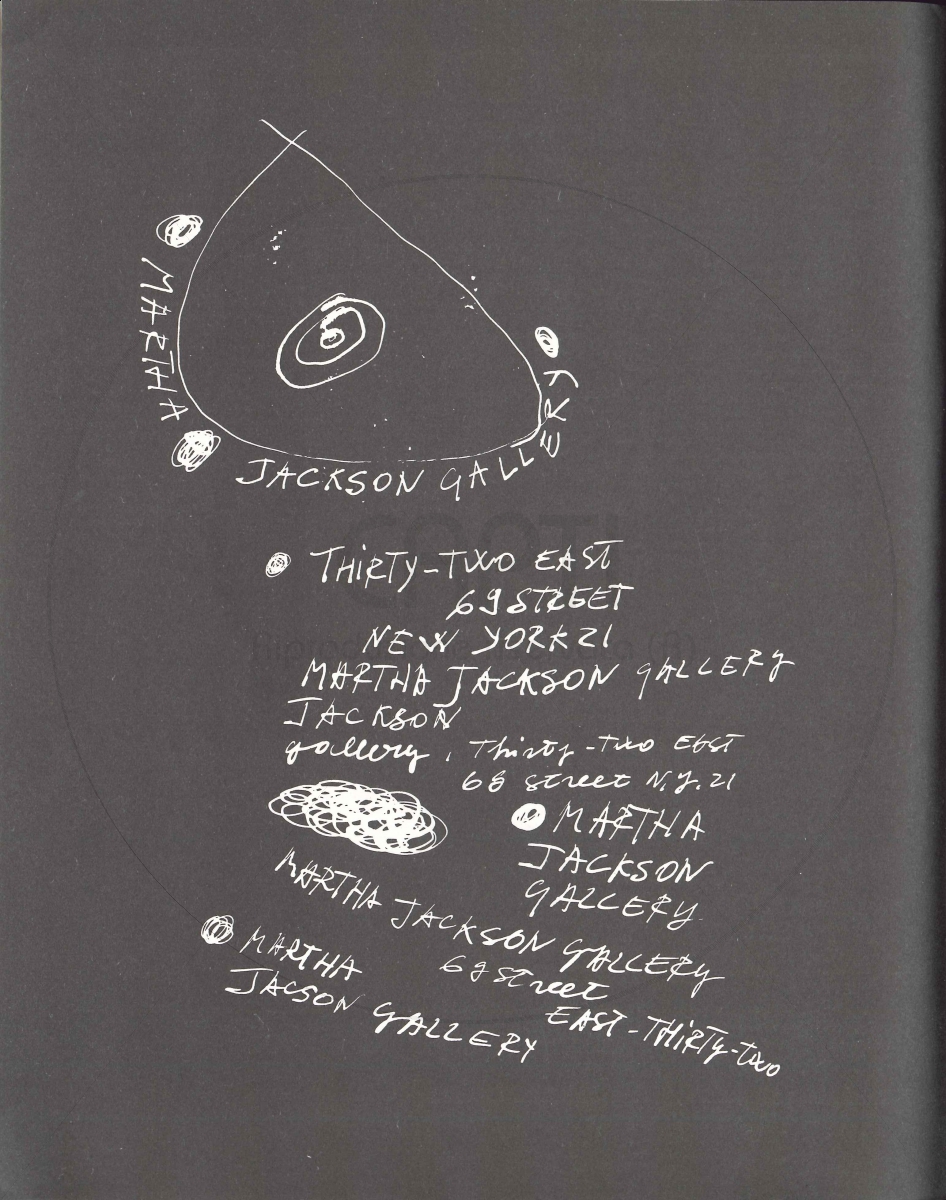 MARTHA
JACKSON GALLERY
THIRTY-TWO EAST
69 STREET
NEW YORK 21
MARTHA JACKSON GALLERY
JACKSON
gallery, Thirty-two EAST
69 street N.Y. 21
MARTHA
JACKSON
GALLERY.
MARTHA JACKSON GALLERY
69 street
EAST-THIRTY-two
MARTHA
JACSON GALLERY